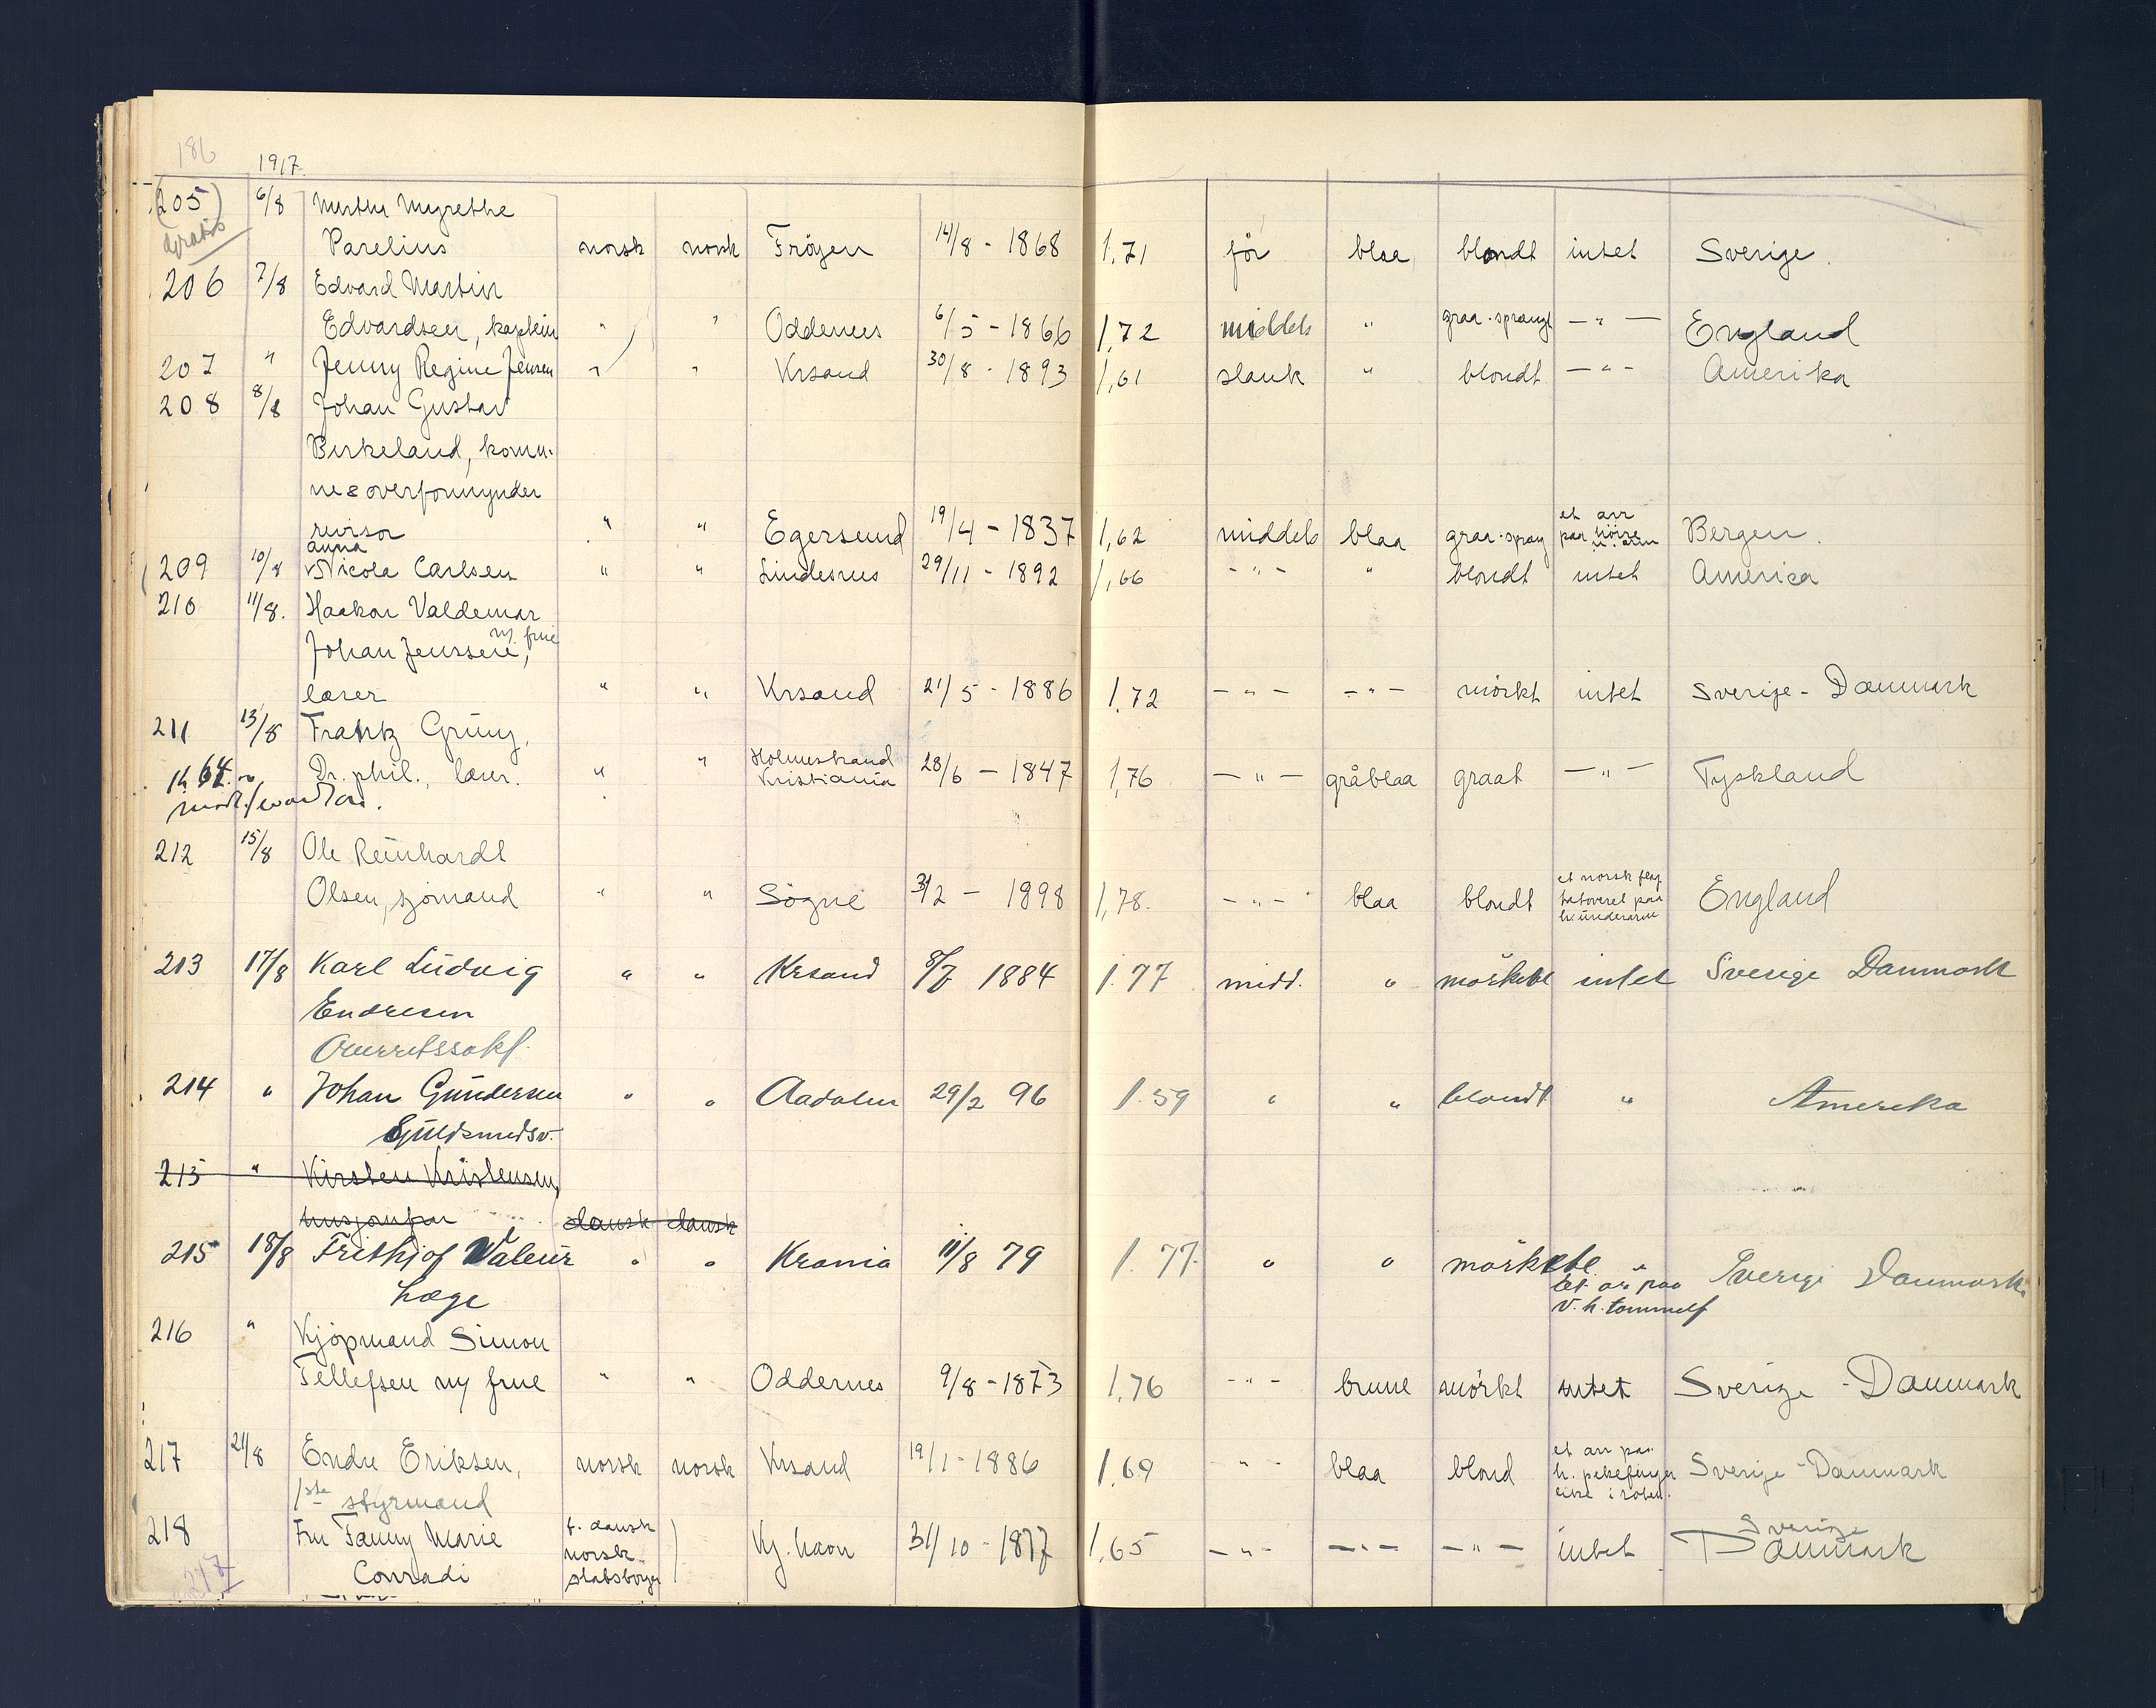 186
1917.
(205) 6/8 Myrethe
gratis Parelius norsk norsk Fröyen 14/8 - 1868 1,71 för blaa blondt intet Sverige.
206 7/8 Edvard Martin
Edvardsen, kaptein " " Oddernes 6/5 - 1866 1,72 middels " graa-sprængt - " - England
207 " Jenny Regine Jensen " " Krsand 30/8 - 1893 1,61 slank " blondt - " - Amerika
208 8/8 Johan Gustav
Birkeland, komu-
nes overformynder
revisor " " Egersund 19/4 - 1837 1,62 middels blaa graa-spræng et arr paa höire u. arm Bergen.
anna
209 10/8 Nicola Carlsen " " Lindesnes 29/11 - 1892 1,66 - " - " blondt intet America
210 11/8. Haakon Valdemar
Johan Jenssen, m. frue
lærer " " Krsand 21/5 - 1886 1.72 - " - - " - mörkt intet Sverige - Danmark
211 13/8 Frantz Grüng,
Dr. phil., lærer. " " Holmestrand Kristiania 28/6 - 1847 1,76 - " - gråblaa graat - " - Tyskland
212 15/8 Ole Reinhardt
Olsen, sjömand " " Sögne 3/2 - 1898 1,78. - " - blaa blondt et norsk flag tatoveret paa h. underarm England
213 17/8 Karl Ludvig " " Krsand 8/7 1884 1.77 midd. " mörkebl intet Sverige Danmark
Endresen
Overretssakf.
214 " Johan Gundersen " " Aadalen 29/2 96 1.59 " " blondt " Amerika
Guldsmedsv.
215 " Kirsten Kristensen,
husjomfru dansk dansk
215 18/8 Frithjof Valeur " " Krania 11/8 79 1.77. " " mörkebl. et ar paa v. h. tommelf Sverige Danmark.
Læge
216 " Kjöpmand Simon
Tellefsen m/ frue " " Oddernes 9/8 - 1873 1,76 - " - brune mörkt intet Sverige - Danmark
217 21/8 Endre Eriksen, norsk norsk Krsand 19/1 - 1886 1.69 - " - blaa blond et arr paa h. pekefinger Sverige - Danmark
1ste styrmand
218 Fru Fanny Marie f. dansk norsk statsborger Kj. havn 31/10 - 1877 1,65 - " - - " - - " - intet Sverige Danmark
Conradi
217